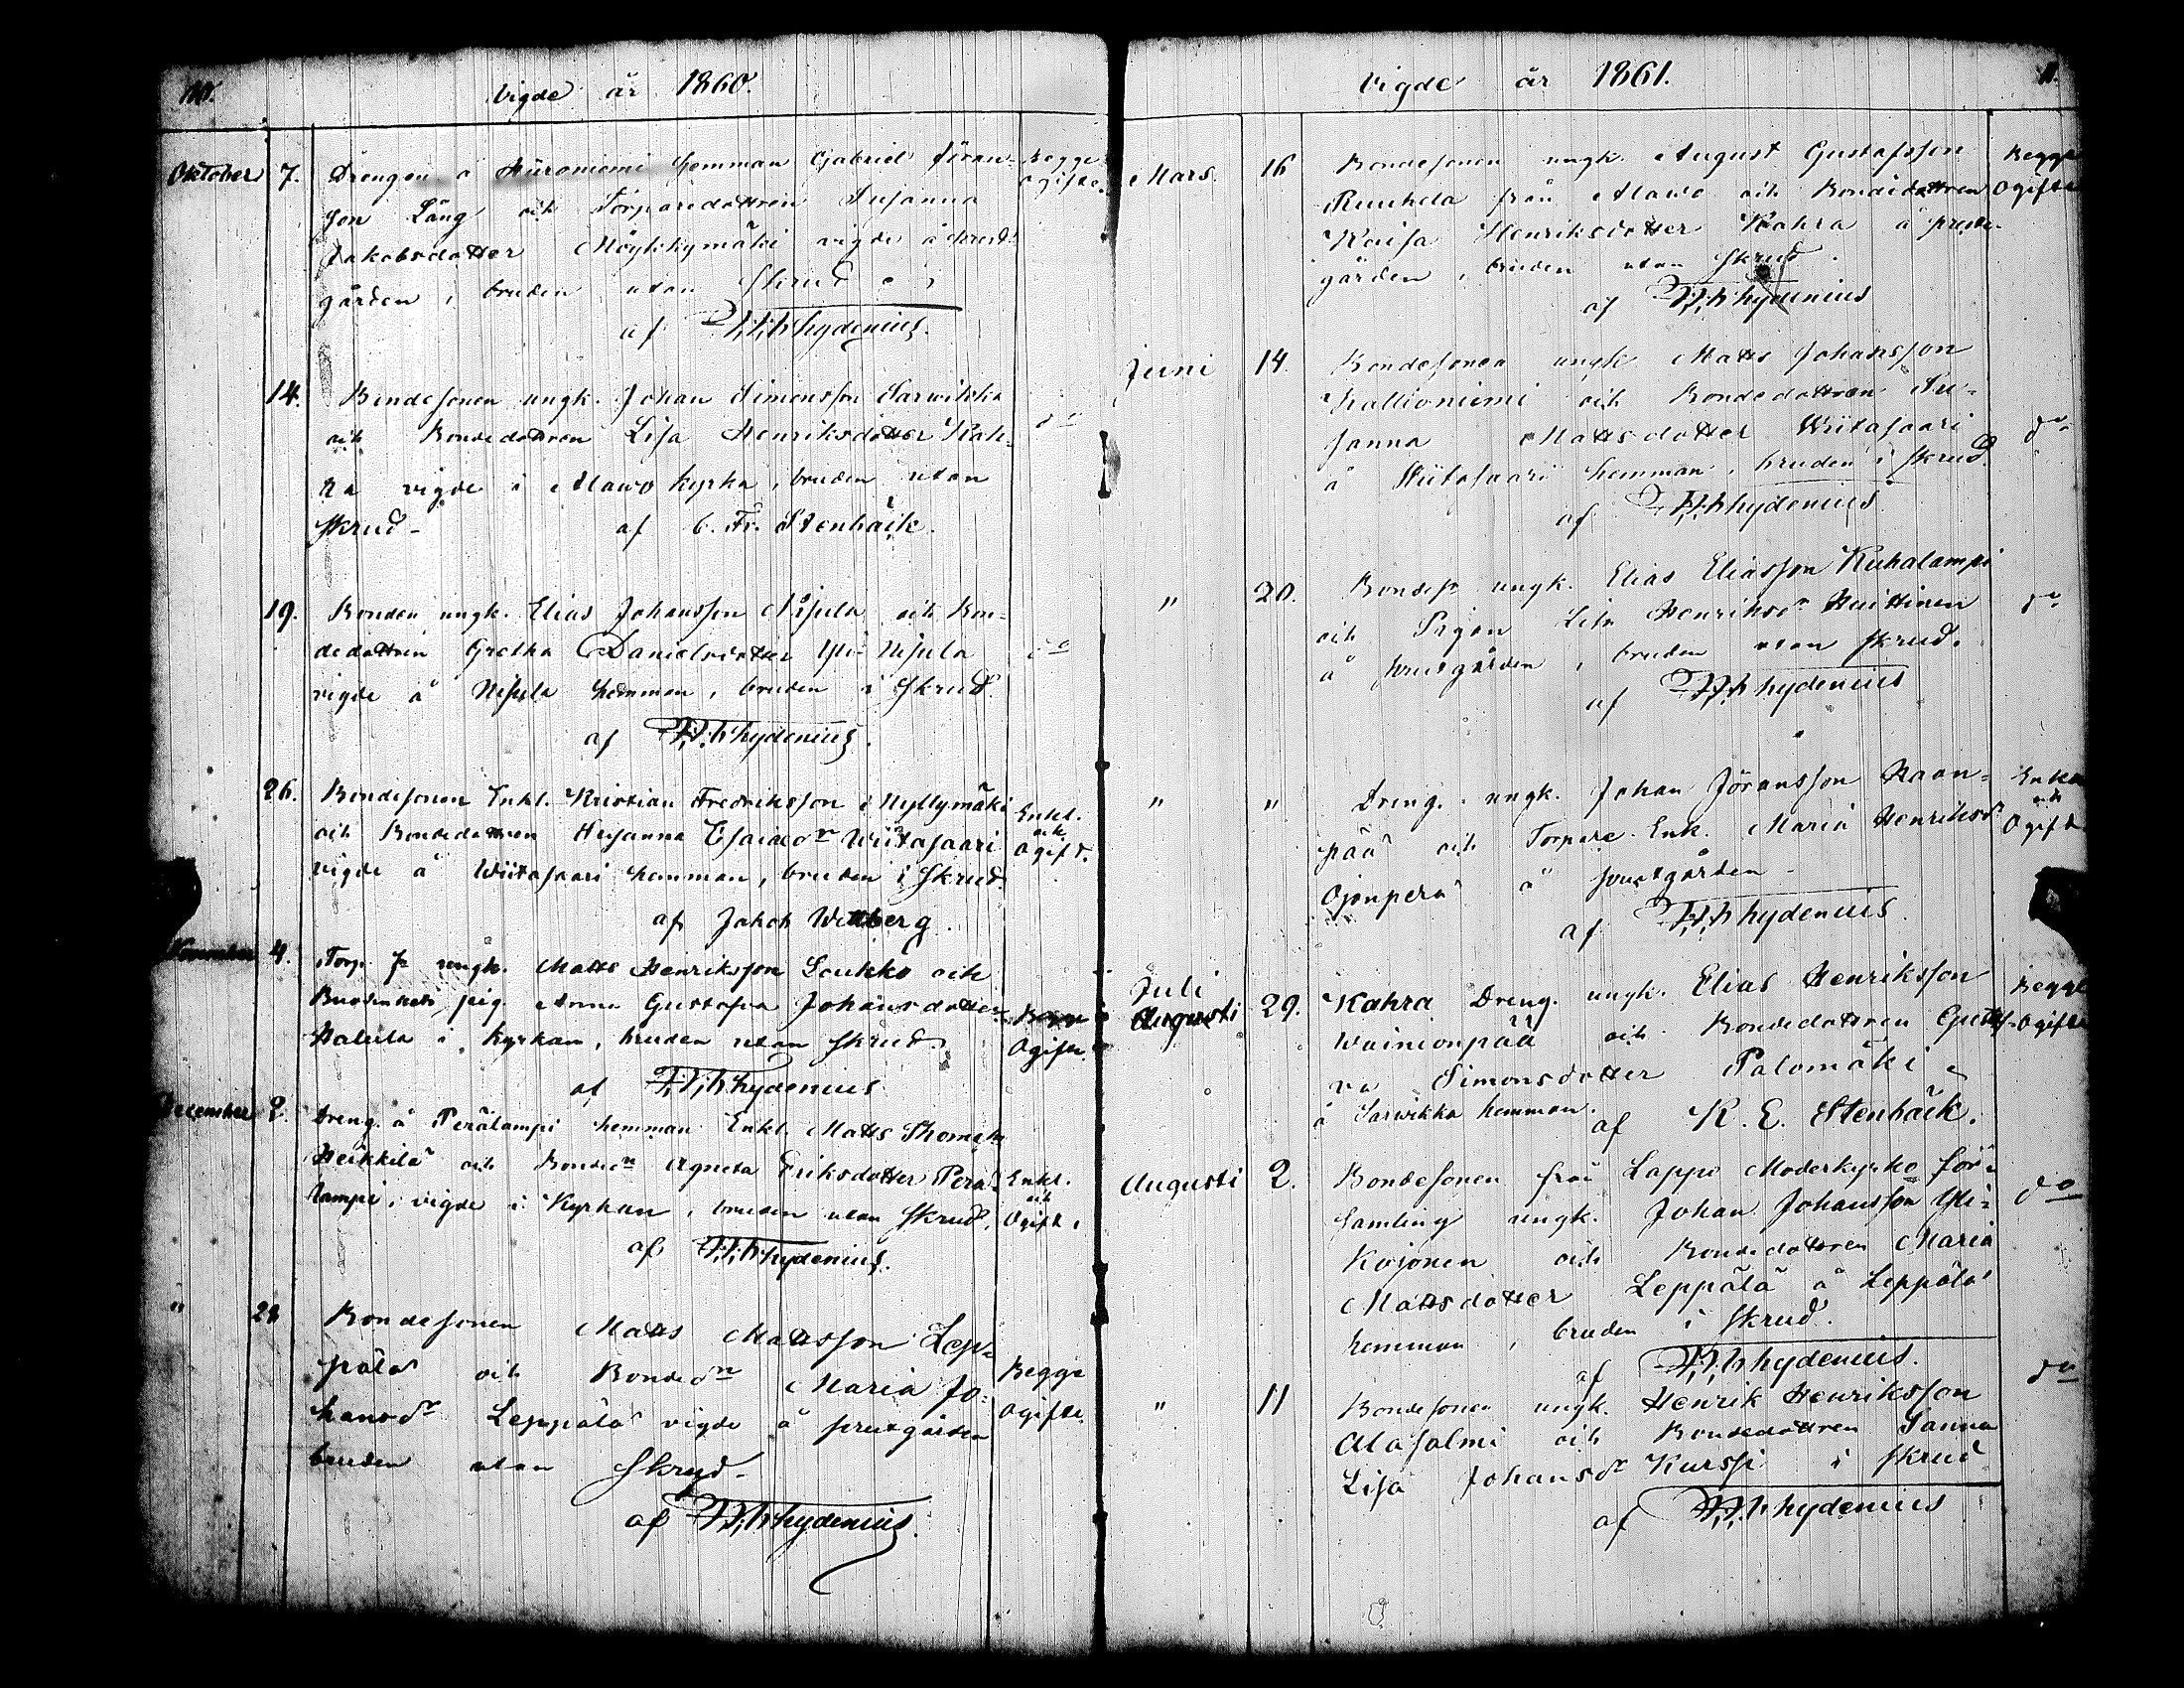 10.
Vigde år 1860.
Oktober 7. Drengen å Hüroniemi hemman Gabriel Jöran- Begge
son Lång och Torparedottren Susanna Ogifte.
Jakobsdotter Möykkymäki vigde å prest-
gården, bruden utan skrud
af W.W. hydenius.
14. Bondesonen ungk. Johan Simonsson Sarwikka do
och Bondedottren Lisa Henriksdotter Kah-
ra vigde i Alawo kyrka, bruden utan
skrud - af C. Fr. Stenbäck.
19. Bonden ungk. Elias Johansson Nisula och Bon-
dedottren Gretha Danielsdotter Yli-Nisula do
vigde å Nisula hemman, bruden i skrud.
af W.W. hydenius.
26. Bondesonen Enkl. Kristian Fredriksson Myllymäki Enkl.
och Bondedottren Susanna Esaiædr Wiitasaari och Ogift.
vigde å Wiitasaari hemman, bruden i skrud.
af Jakob Wettberg
November 4. Torp. sn ungk. Matts Henriksson Loukko och
pig. Anna Gustafva Johansdotter Begge
i Kyrkan, bruden utan skrud. Ogifte.
af W.W. hydenius
December 2. Dreng. å Perälampi hemman Enkl. Matts Thomas
Heikkilä och Bondedr Agneta Eriksdotter Perä- Enkl.
lampi, vigde i Kyrkan, bruden utan skrud. och Ogift.
af W.W. hydenius.
" 28 Bondesonen Matts Mattsson Lep-
pälä och Bondedr Maria Jo- Begge
hansdr Leppälä vigde å prestgården Ogifte.
bruden utan skrud -
af W.W. hydenius.
Vigde år 1861. 11.
Mars. 16 Bondesonen ungk. August Gustafsson Begge
Ruuhela från Alawo och Bondedottren Ogifte
Kaisa Henriksdotter Kahra å prest-
gården, bruden utan skrud.
af W.W. hydenius
Juni 14. Bondesonen ungk. Matts Johansson
Kallioniemi och Bondedottren Su-
sanna Mattsdotter Wiitasaari do
å Wiitasaari hemman, bruden i skrud.
af W.W. hydenius
" 20. Bondesn ungk. Elias Eliasson Kuhalampi
och Pigan Lisa Henriksdr Huittinen do
å prestgården, bruden utan skrud.
af W.W. hydenius
" " Dreng. ungk. Johan Jöransson Haan- Enka
pää och Torpare Enk. Maria Henriksdr och Ogift
Ojanperä å prestgården -
af W.W. hydenius
Juli
Augusti 29. Kahra Dreng. ungk. Elias Henriksson Begge
Wainionpää och Bondedottren Gustaf- Ogifte
va Simonsdotter Palomäki
å Sarwikka hemman. af K. E. Stenbäck.
Augusti 2. Bondesonen från Lappo Moderkyrko för- do
samling ungk. Johan Johansson Yli-
Kojonen och Bondedottren Maria
Mattsdotter Leppälä å Leppälä
hemman, bruden i skrud.
af W.W. hydenius.
" 11 Bondesonen ungk. Henrik Henriksson do
Alasalmi och Bondedottren Sanna
Lisa Johansdr Kurssi i skrud
af W.W. hydenius